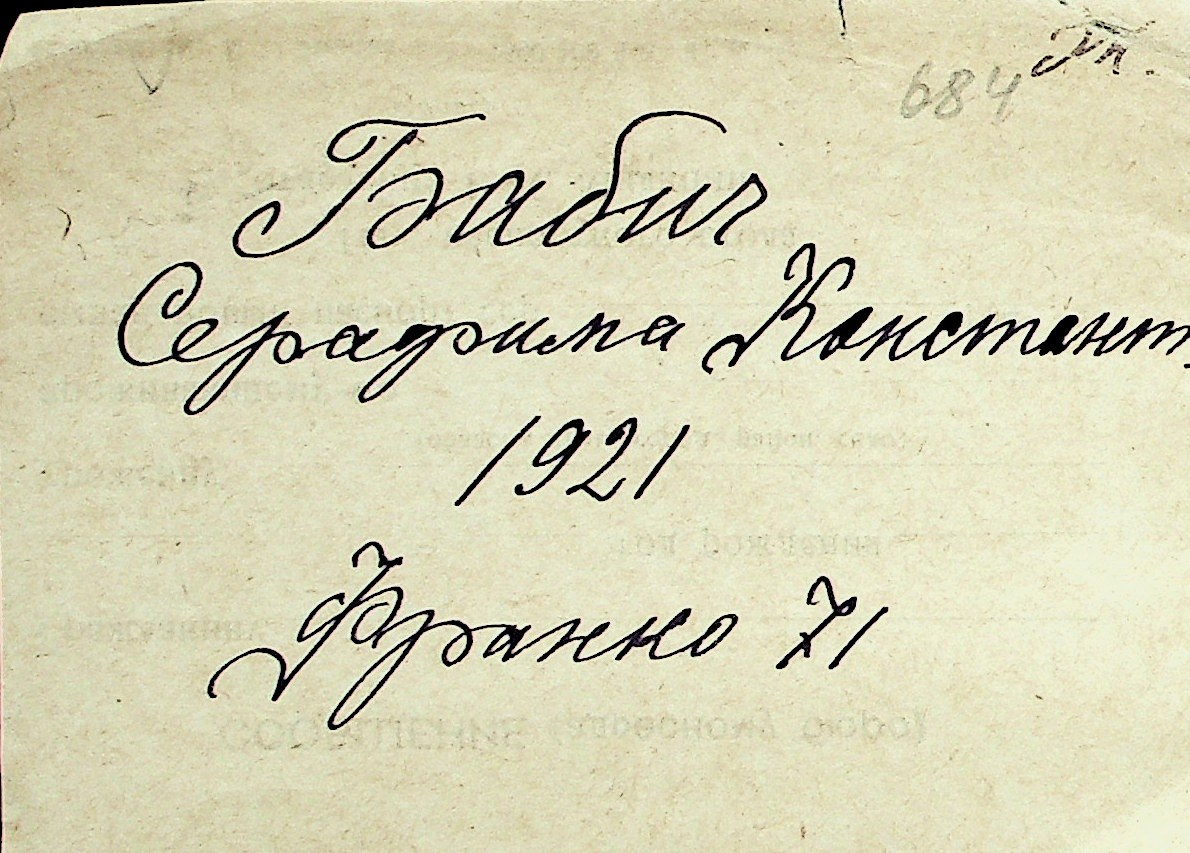 684
Бабич
Серафима Констант
1921
Франко 71